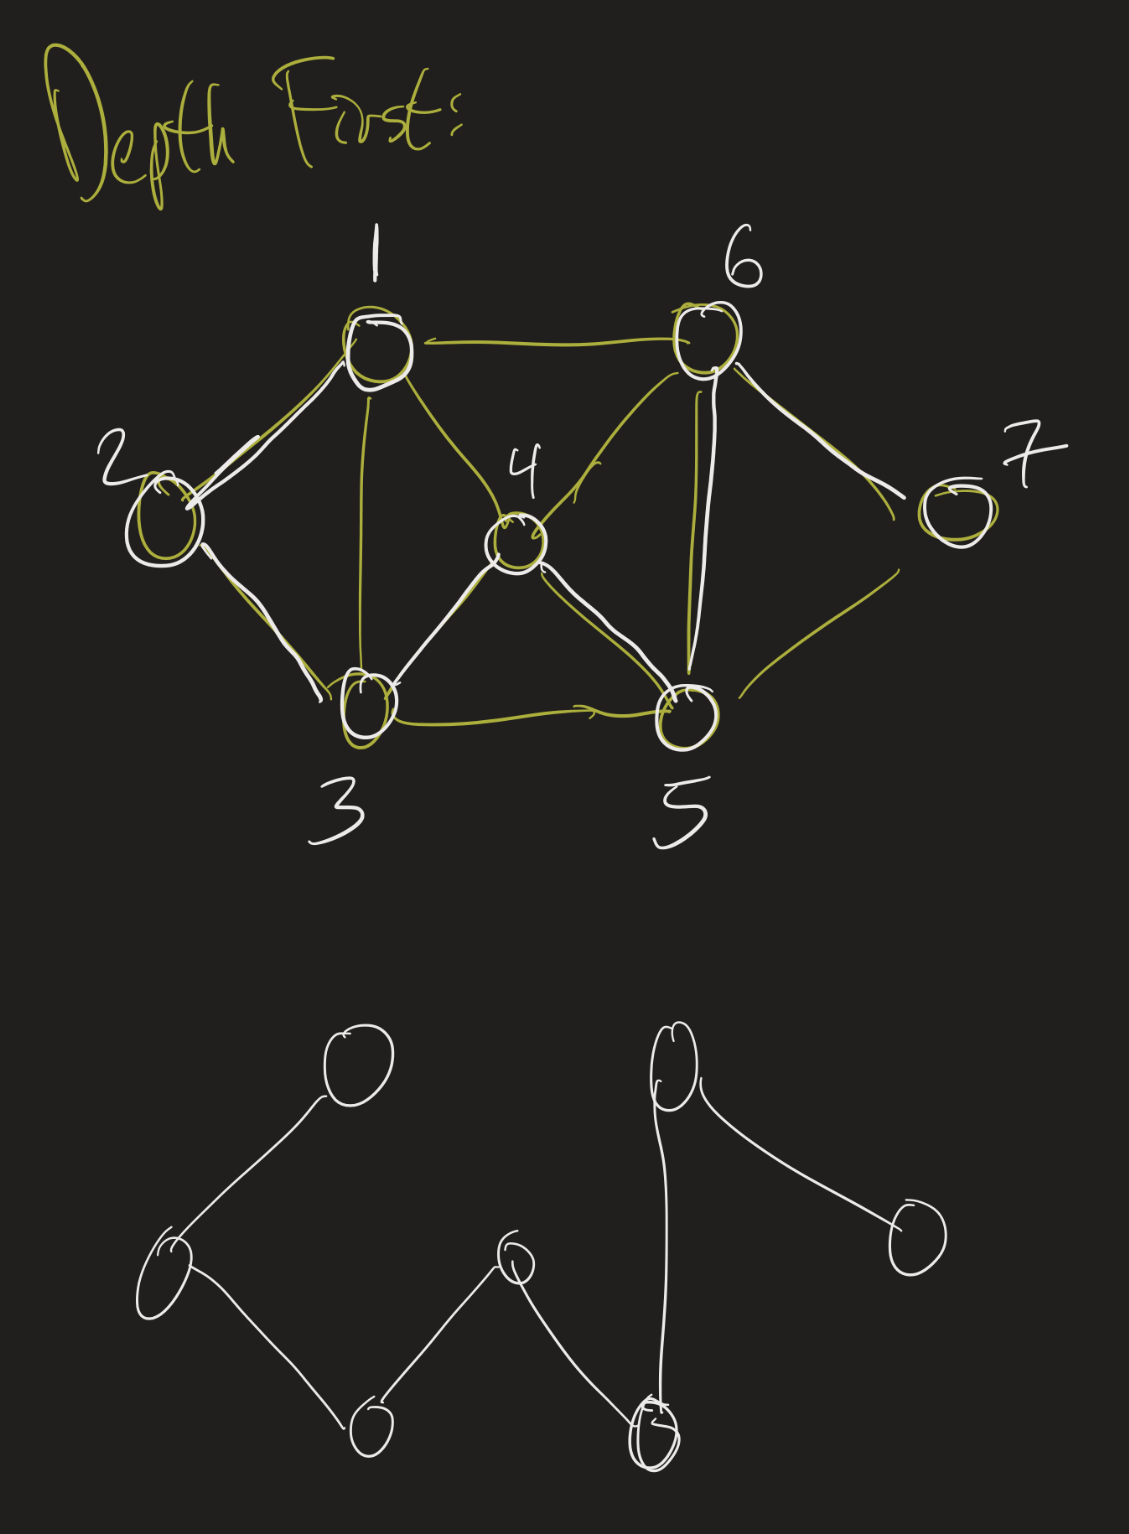 Depth First:
1
6
2
4
7
3
5